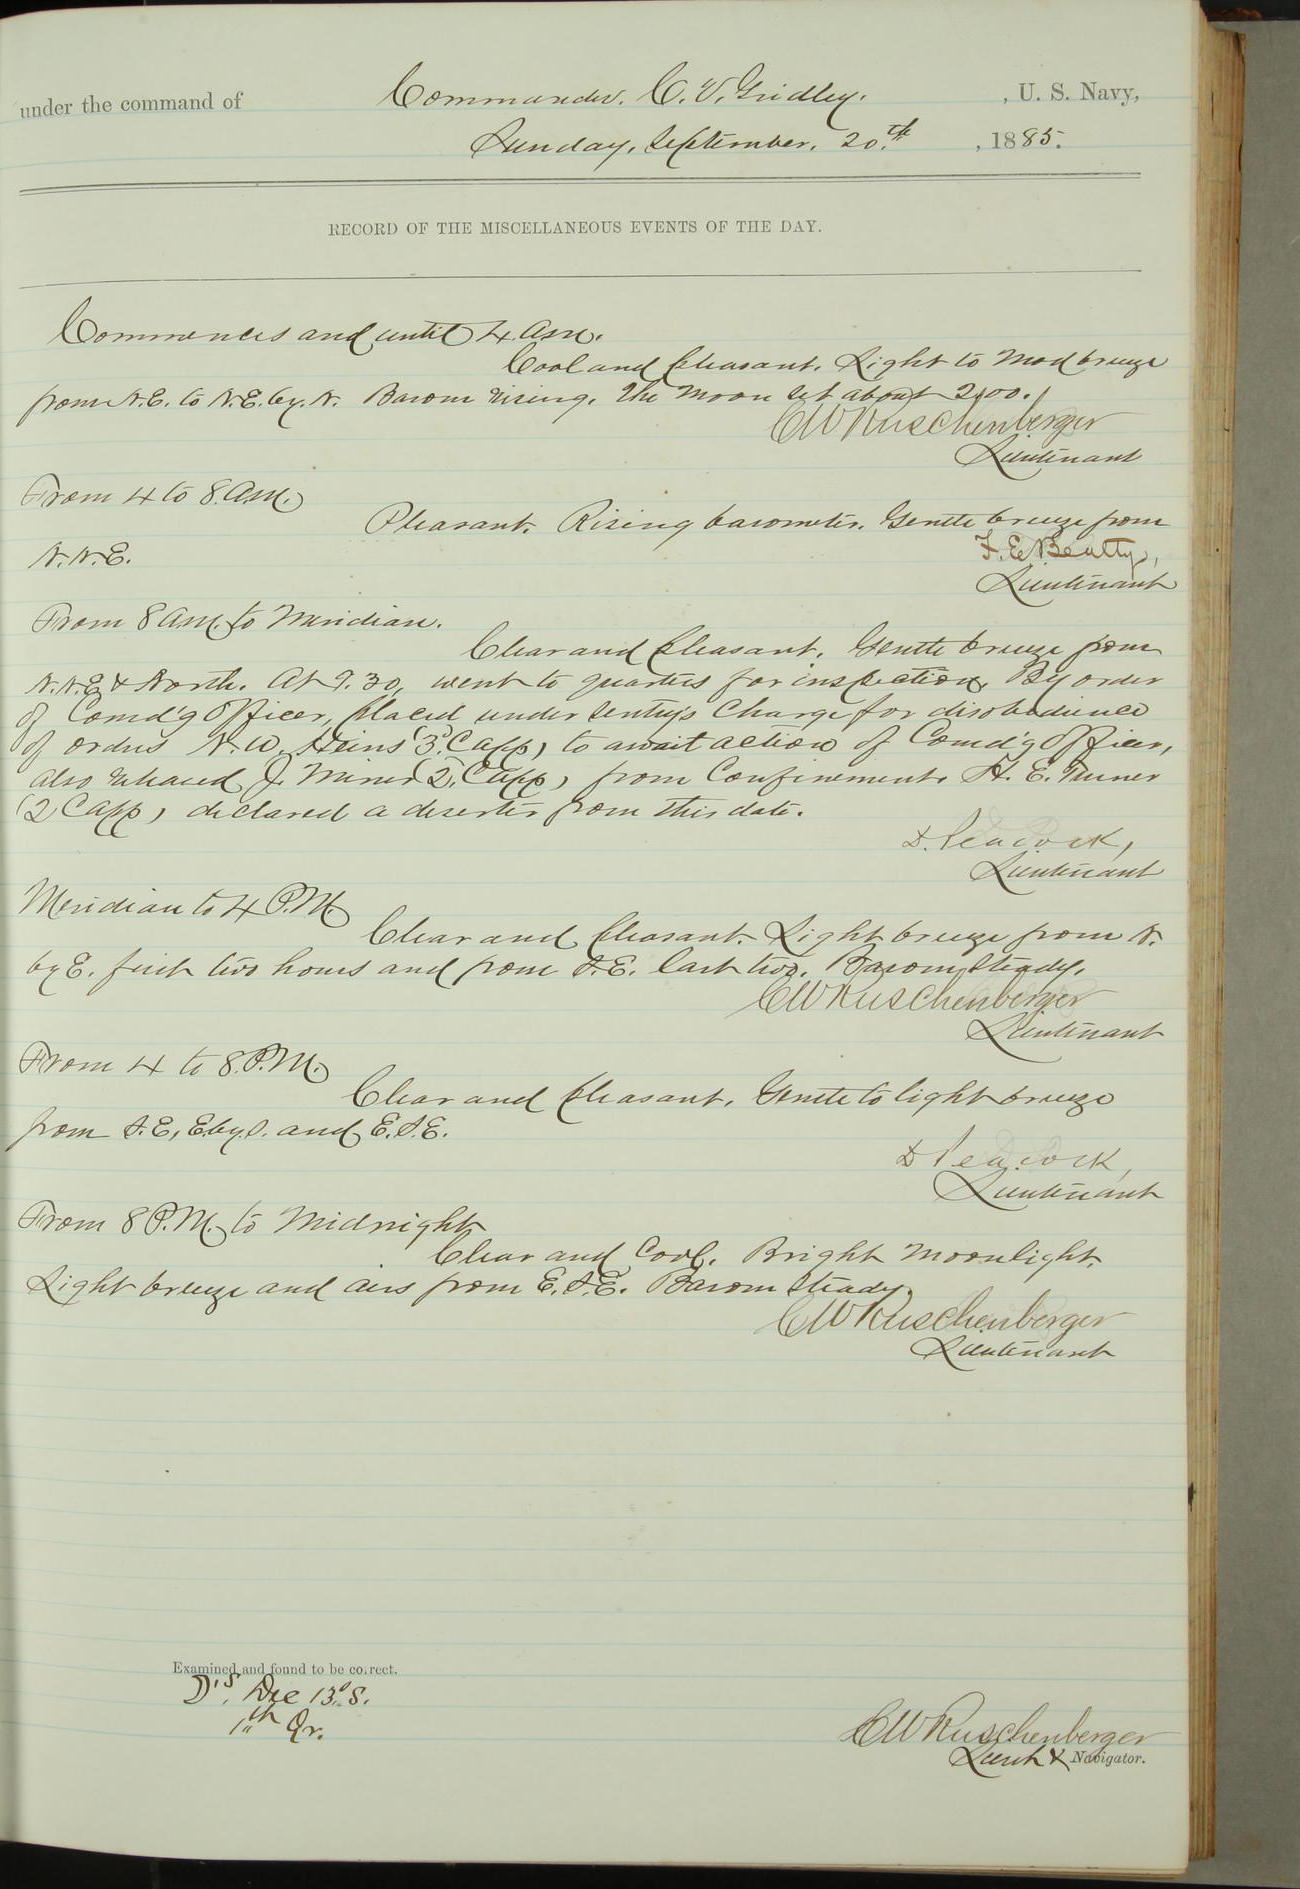 under the command of Commander. C. V. Gridley. , U. S. Navy,
Sunday, September. 20.th , 1885.
RECORD OF THE MISCELLANEOUS EVENTS OF THE DAY.
Commences and until 4. A.m.
Cool and pleasant. Light to Mod breeze
from N.E. to N.E. by. N. Barom rising. The Moon set about 2.00.
C W Ruschenberger
Lieutenant
From 4 to 8. A.M.
Pleasant. Rising barometer. Gentle breeze from
N.N.E.
F. E. Beatty,
Lieutenant
From 8 A.M. to Meridian.
Clear and pleasant. Gentle breeze from
N.N.E & North. At 9.30, went to quarters for inspection. By order
of Comd'g Officer, placed under sentry's charge for disobedience
of orders N. W. Heins (3.C app) to await action of Comd'g Officer,
also released J. Miner (2.C app) from confinement. H. E. Turner
(2 C app) declared a deserter from this date.
D. Peacock,
Lieutenant
Meridian to 4 P.M.
Clear and pleasant. Light breeze from N.
by E. first two hours and from S.E. last two. Barom steady.
C W Ruschenberger
Lieutenant
From 4 to 8. P.M.
Clear and pleasant. Gentle to light breeze
from S.E, E. by. S. and E.S.E.
D Peacock,
Lieutenant
From 8 P.M. to Midnight
Clear and Cool. Bright Moonlight.
Light breeze and airs from E.S.E. Barom steady.
C W Ruschenberger
Lieutenant
Examined and found to be correct.
D's. Dec 13. S.
1" Qr.
C W Ruschenberger
Lieut & Navigator.